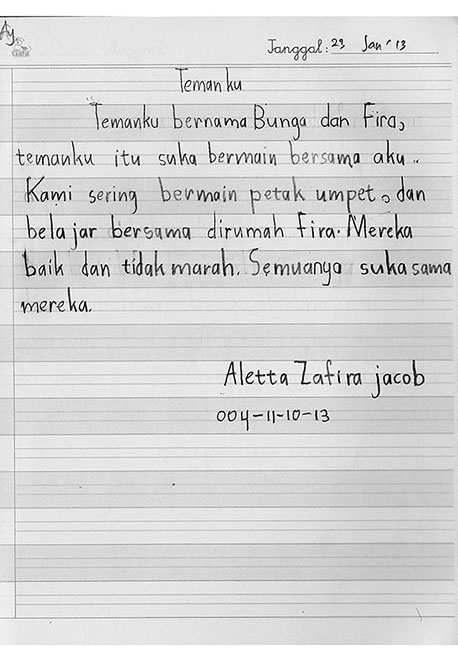 Ay
Tanggal: 29 Jan '13
Temanku
Temanku bernama Bunga dan Fira,
temanku itu suka bermain bersama aku..
Kami sering bermain petak umpet. dan
belajar bersama dirumah Fira. Mereka
baik dan tidak marah. Semuanya suka sama
mereka.
Aletta Zafira jacob
004-11-10-13